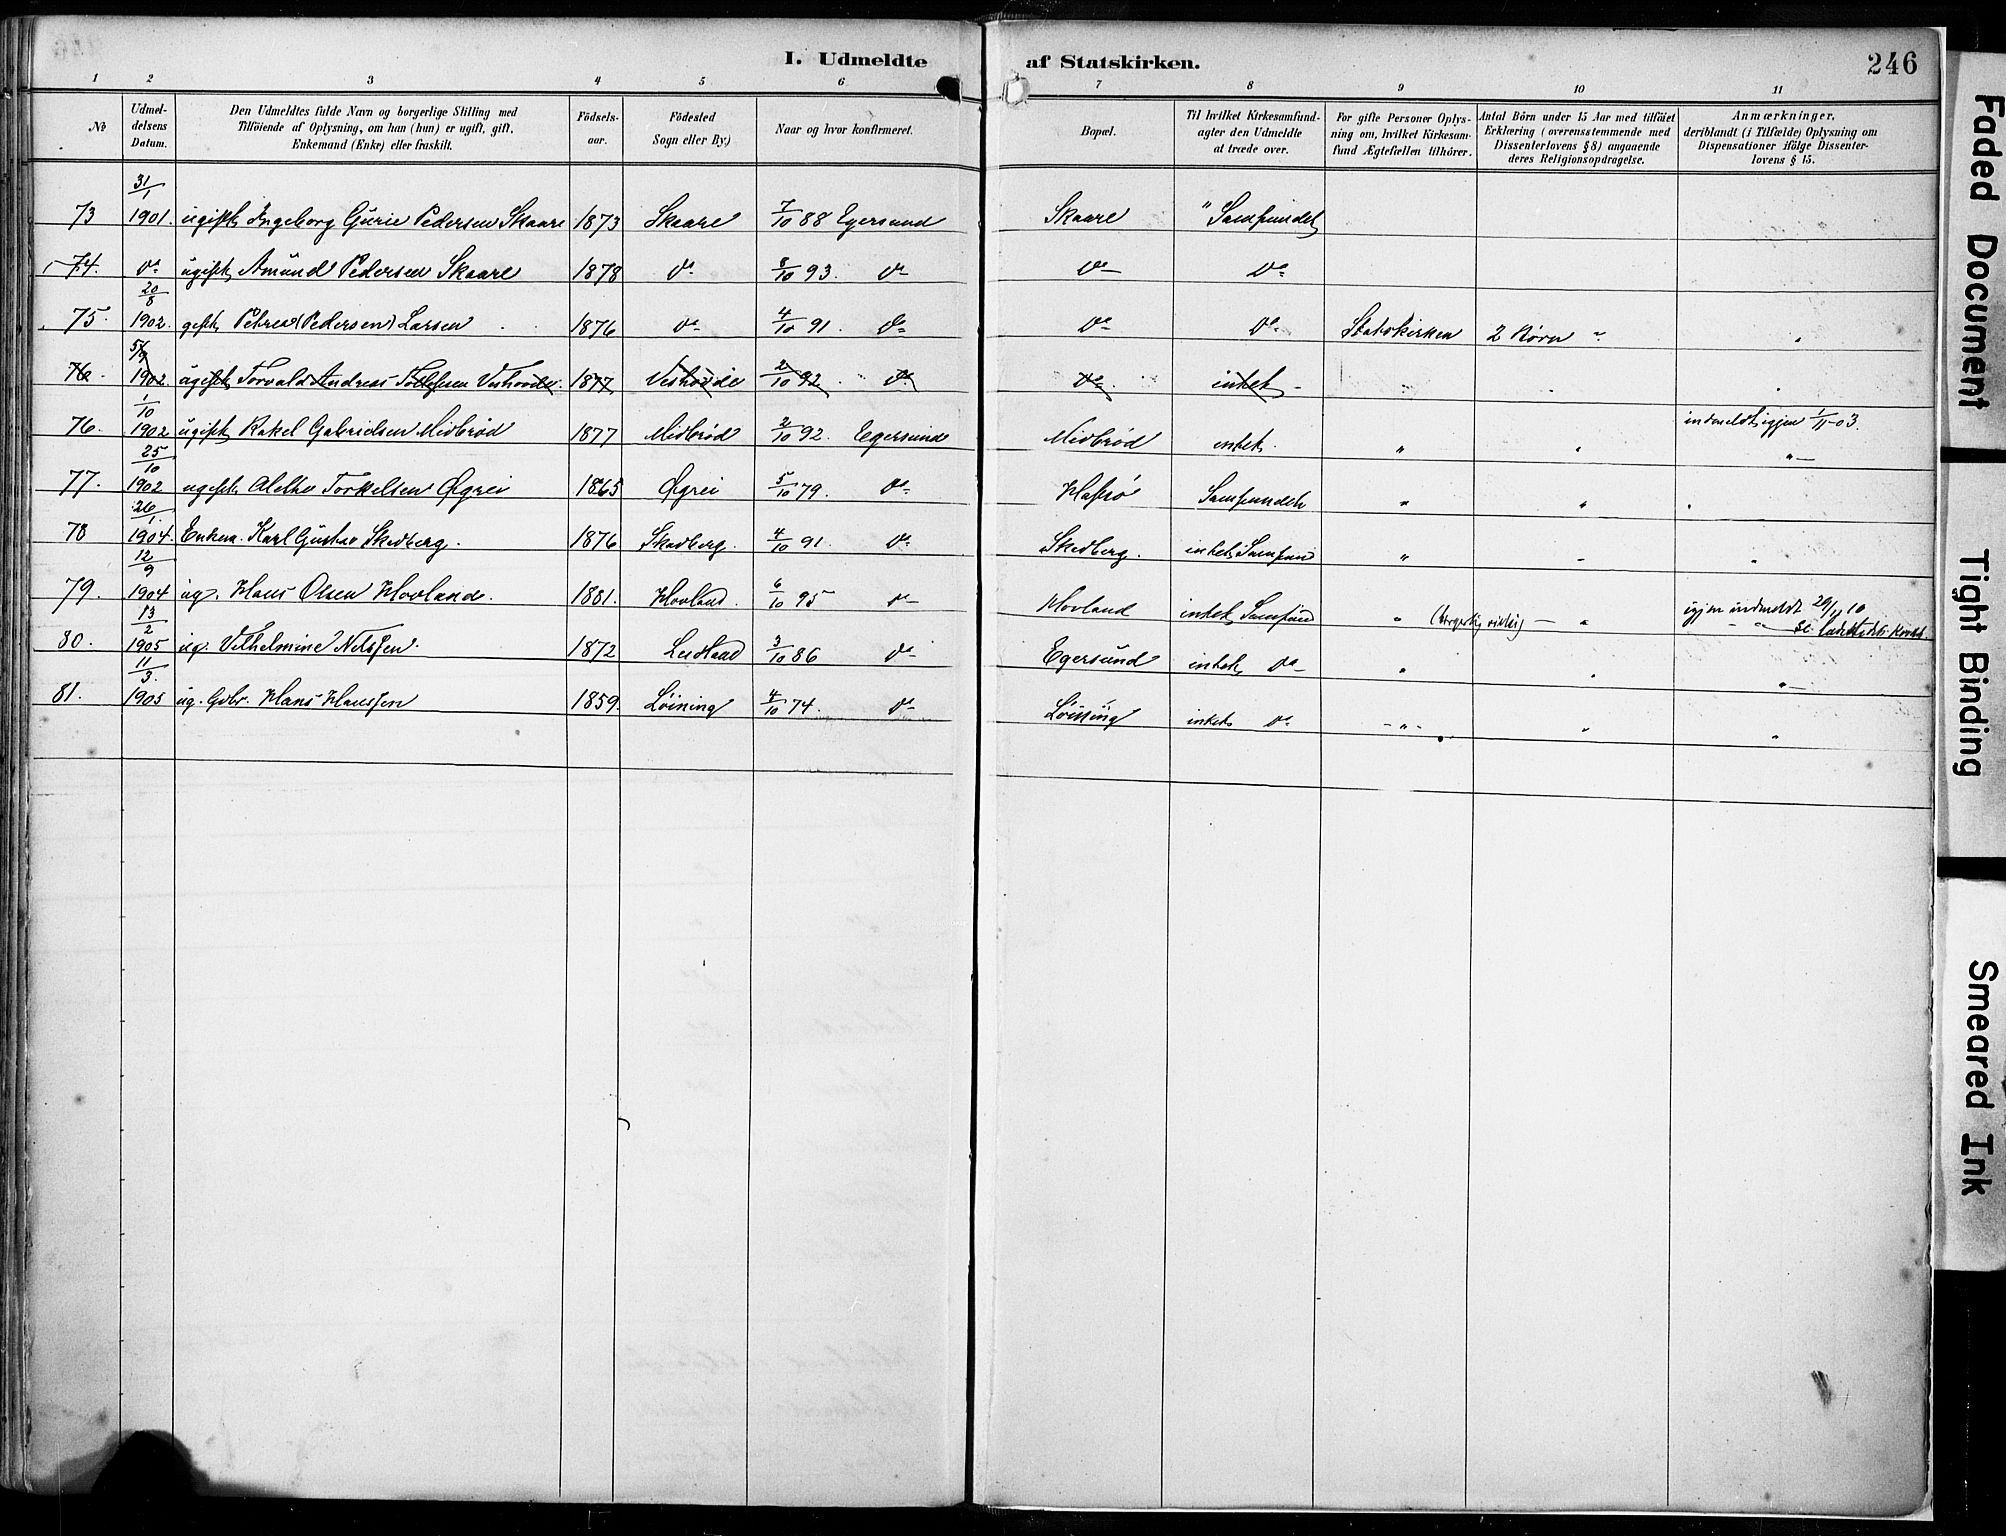 I. Udmeldte af Statskirken. 246
1 2 3 4 5 6 7 8 9 10 11
No
Udmel-
delsens
Datum.
Den Udmeldtes fulde Navn og borgerlige Stilling med
Tilföiende af Oplysning, om han (hun) er ugift, gift,
Enkemand (Enke) eller fraskilt.
Födsels-
aar.
Födested
Sogn eller By.)
Naar og hvor konfirmeret.
Bopæl.
Til hvilket Kirkesamfund-
agter den Udmeldte
at træde over.
For gifte Personer Oplys-
ning om, hvilket Kirkesam-
fund Ægtefællen tilhörer.
Antal Börn under 15 Aar med tilföiet
Erklæring (overensstemmende med
Dissenterlovens § 8) angaaende
deres Religionsopdragelse.
Anmærkninger,
deriblandt (i Tilfælde) Oplysning om
Dispensationer ifölge Dissenter-
lovens § 15.
73 31/1 1901. ugift Ingeborg Gurie Pedersen Skaare 1873 Skaare 7/10 88 Egersund Skaare "Samfundet
74. do ugift Amund Pedersen Skaare 1878 do 8/10 93. do do do
75. 20/8 1902. gift Petrea (Pedersen) Larsen 1876 do 4/10 91. do do do Statskirken 2 Børn "
76. 5/9 1902. ugift Torvald Andreas Tollefsen 1877 2/10 92. do do intet
76. 1/10 1902 ugift Rakel Gabrielsen Midbrød 1877 Midbrød 2/10 92. Egersund Midbrød intet. " " indmeldt igjen 1/11-03.
77. 25/10 1902 ugift Alethe Torkelsen Øgrei 1865 Øgrei 5/10 79. do Hafsø Samfundet " "
78 26/1 1904. Enkem. Karl Gustav Skedberg. 1876 Skadberg. 4/10 91 do Skedberg. intet Samfund "
79. 12/9 1904 ug. Hans Olsen Hovland. 1881. Hovland. 6/10 95 do Hovland intet Samfund " " igjen indmeldt
80. 13/2 1905 ug. Vilhelmine Nilssen. 1872 3/10 86 do Egersund intet do "
81. 11/3 1905 ug. Gdbr. Hans Hanssen 1859. Löining 4/10 74. do Löining intet do - " -
Faded Document
Tight Binding
Smeared Ink